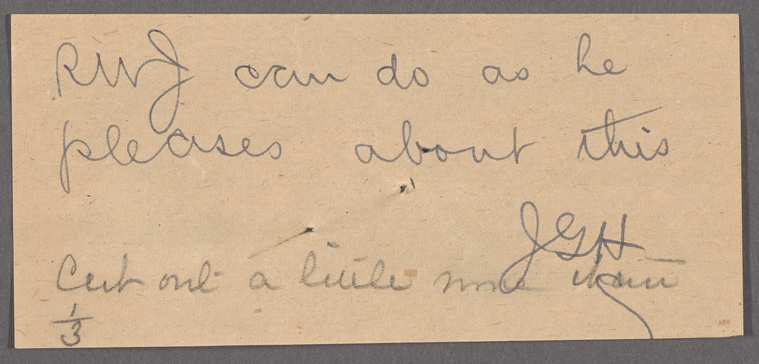 RWJ can do as he
pleases about this
JGH
Cut out a little more than
1/3